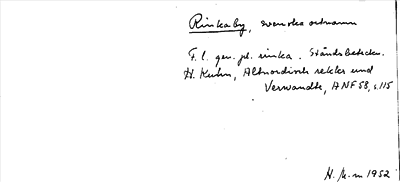 Rinkaby, svenska ortnamn
F. l. gen. pl. rinka. Ståndsbeteckn.
H. Kuhn, Altnordisch rekkr und
Verwandte, ANF 58, s. 115
H. M-m 1952